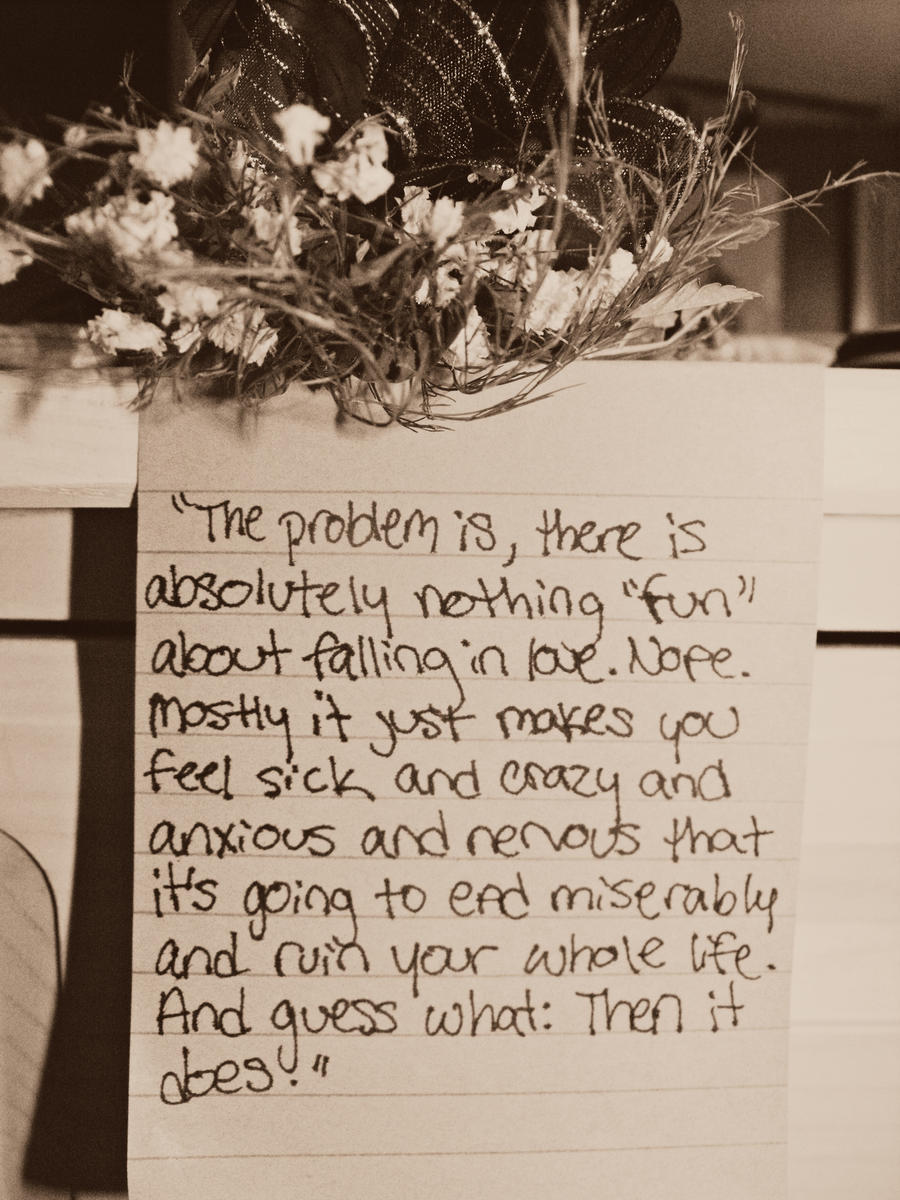 "The problem is, there is
absolutely nothing "fun"
about falling in love. Nope.
Mostly it just makes you
feel sick and crazy and
anxious and nervous that
it's going to end miserably
and ruin your whole life.
And guess what: Then it
does!"